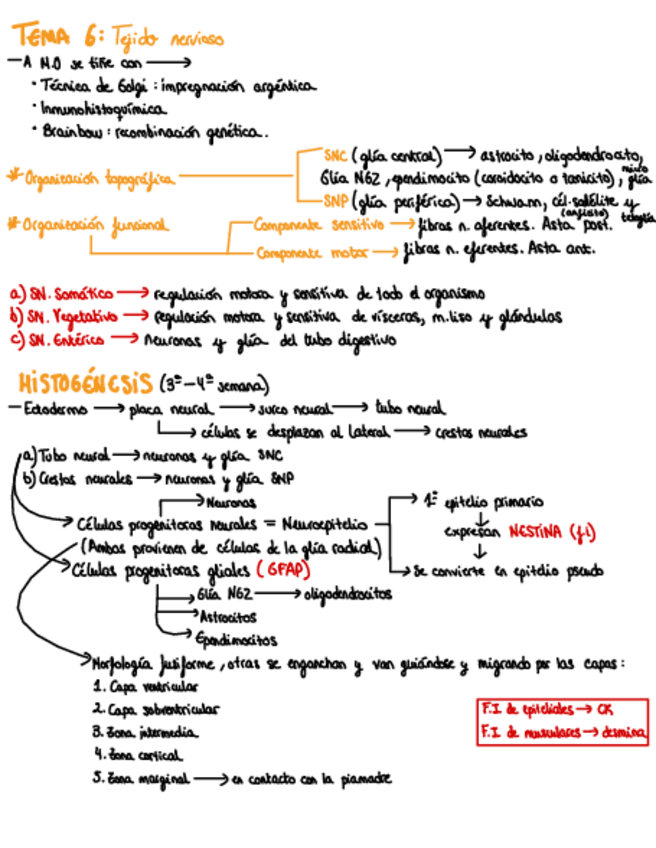 TEMA 6: Tejido nervioso
— A M.O se tiñe con →
· Técnica de Golgi : impregnación argéntica
· Inmunohistoquímica
· Brainbow : recombinación genética.
* Organización topográfica
SNC (glía central) → astrocito, oligodendrocito,
Glía NG2, ependimocito (coroidocito o tanicito), micro glía
SNP (glía periférica) → Schwann, cél. satélite y
(anfisito) teloglía
* Organización funcional
Componente sensitivo → fibras n. aferentes. Asta post.
Componente motor → fibras n. eferentes. Asta ant.
a) SN. Somático → regulación motora y sensitiva de todo el organismo
b) SN. Vegetativo → regulación motora y sensitiva de vísceras, m. liso y glándulas
c) SN. Entérico → neuronas y glía del tubo digestivo
HISTOGÉNESIS (3ª — 4ª semana)
— Ectodermo → placa neural → surco neural → tubo neural
→ células se desplazan al lateral → crestas neurales
a) Tubo neural → neuronas y glía SNC
b) Crestas neurales → neuronas y glía SNP
→ Neuronas
→ Células progenitoras neurales = Neuroepitelio
→ 1º epitelio primario
expresan NESTINA (f.i)
→ Se convierte en epitelio pseudo
(Ambas provienen de células de la glía radial)
→ Células progenitoras gliales (GFAP)
→ Glía NG2 → oligodendrocitos
→ Astrocitos
→ Ependimocitos
→ Morfología fusiforme, otras se enganchan y van guiándose y migrando por las capas :
1. Capa ventricular
2. Capa subventricular
3. Zona intermedia
4. Zona cortical
5. Zona marginal → en contacto con la piamadre
F.I. de epiteliales → CK
F.I. de musculares → desmina